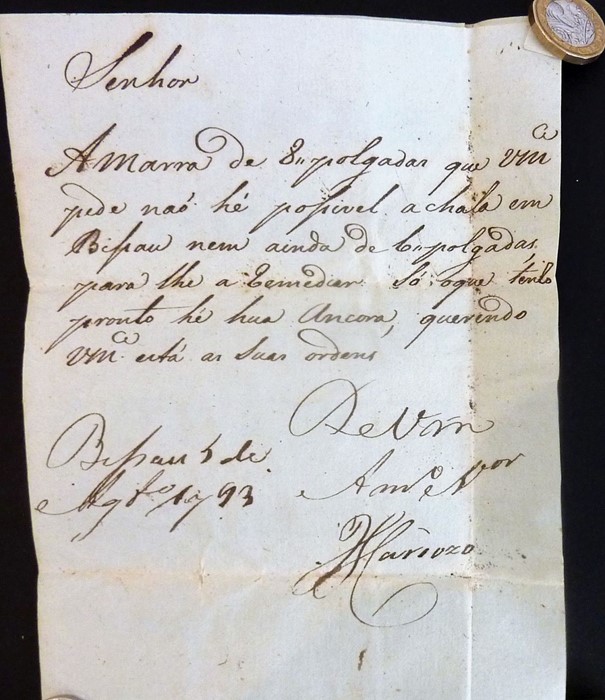 Senhor
A Marra de 8,, polgadas que Vmce
pede naó hé posivel achala em
Bissau nem ainda de 6,, polgadas
para lhe a Remedier Só oque tenho
pronto hé hua Ancora, querendo
Vmce está as Suas ordens
De Vm
Bissau 5 de
Agto 1793
Amo e Vor